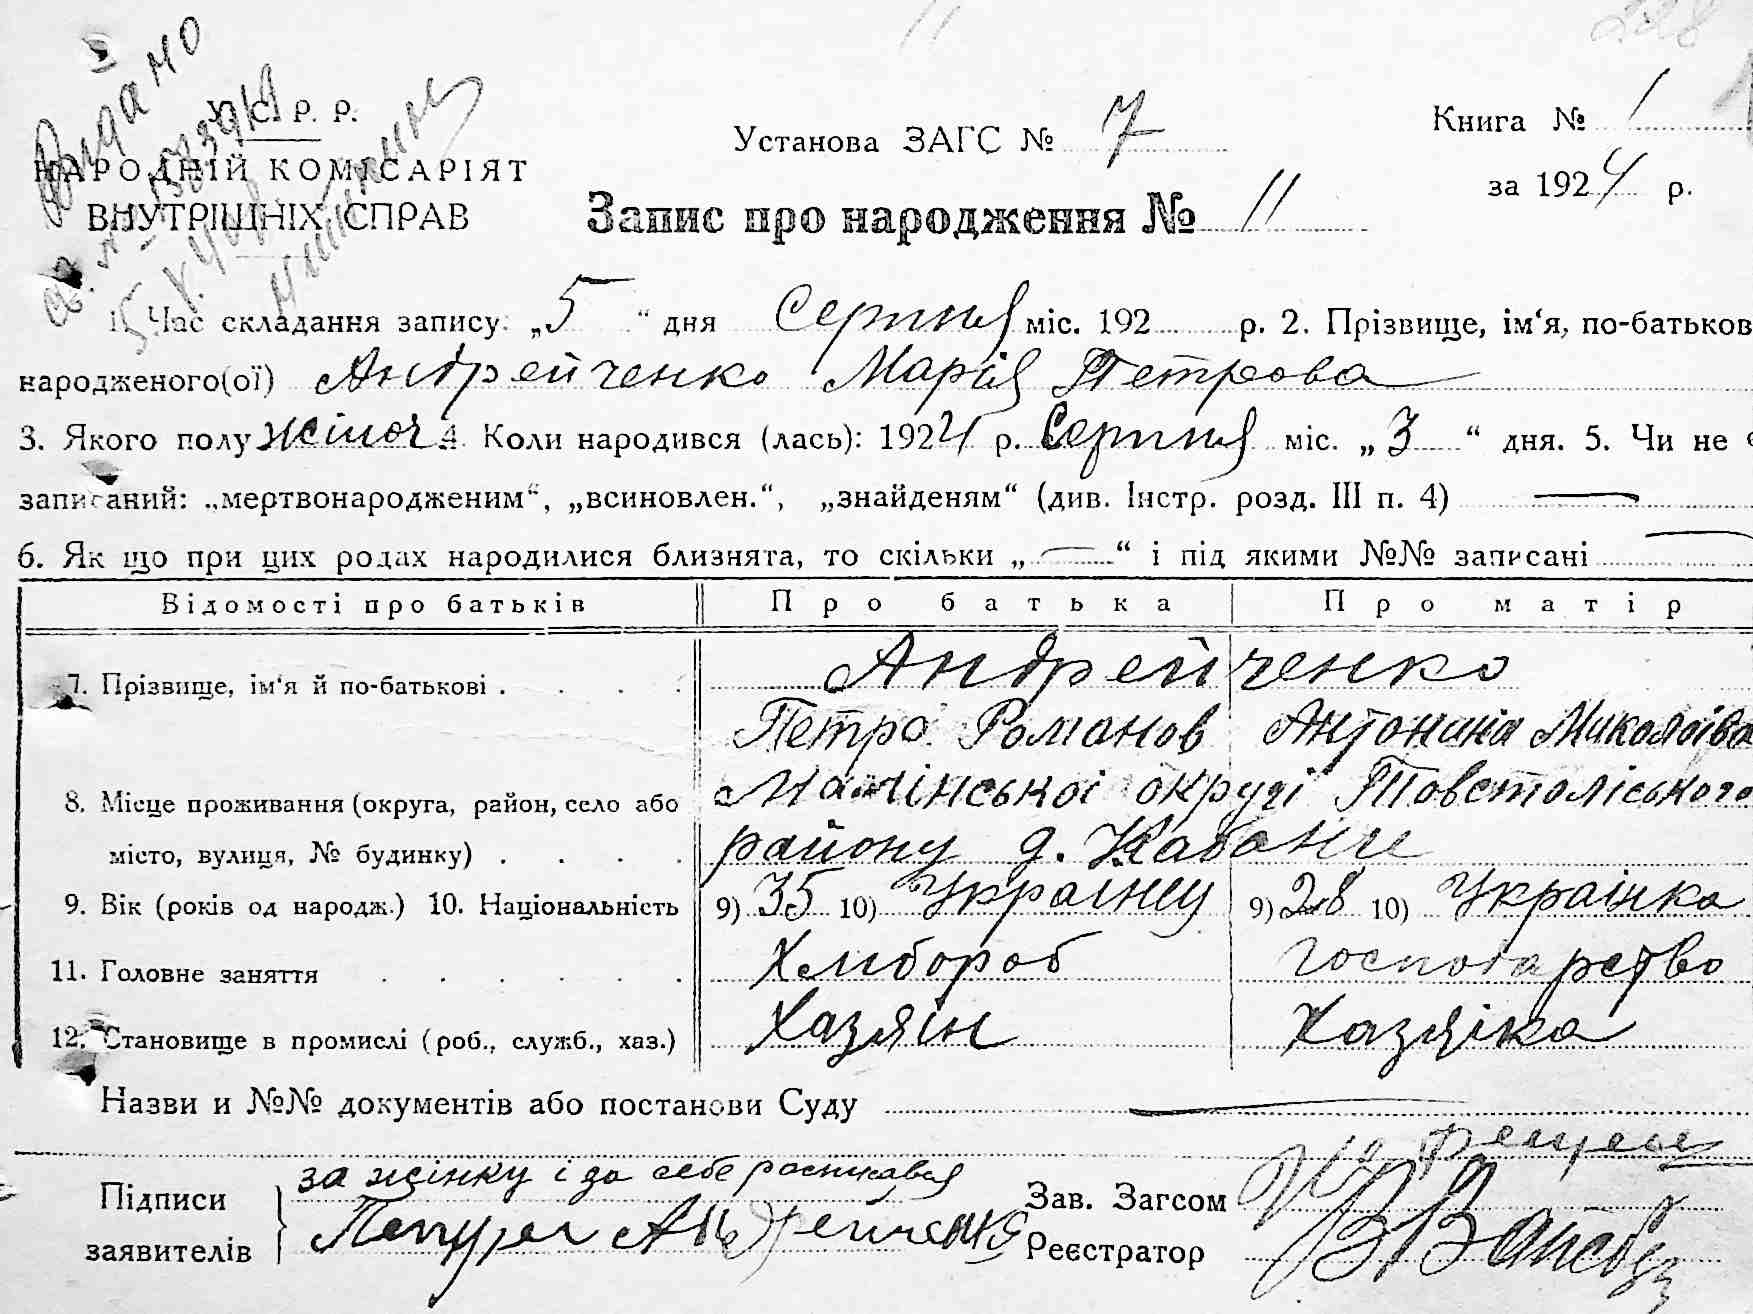 Видано
У. С. Р. Р.
НАРОДНІЙ КОМІСАРІЯТ
ВНУТРІШНІХ СПРАВ
Установа ЗАГС № 7
Книга № 1
за 1924 р.
Запис про народження № 11
1. Час складання запису: „5“ дня Серпня міс. 192 р. 2. Прізвище, ім‘я, по-батьков
народженого(ої) Андрейченко Марія Петрова
3. Якого полу жіноч 4. Коли народився (лась): 1924 р. Серпня міс. „3“ дня. 5. Чи не
записаний: „мертвонародженим“, „всиновлен.“, „знайденям“ (див. Інстр. розд. III п. 4) —
6. Як що при цих родах народилися близнята, то скільки „—“ і під якими №№ записані —
Відомості про батьків Про батька Про матір
7. Прізвище, ім‘я й по-батькові . . . . Андрейченко
Петро Романов Антонина Миколаіва
8. Місце проживання (округа, район, село або Малінськоі округі Товстоліського
місто, вулиця, № будинку) . . . . району д. Кабани
9. Вік (років од народж.) 10. Національність 9) 35 10) Украінец 9) 28 10) Украінка
11. Головне заняття . . . . . . Хлибороб господарство
12. Становище в промислі (роб., служб., хаз.) Хазяін Хазяіка
Назви и №№ документів або постанови Суду —
Підписи
заявителів
за жінку і за себе росписався
Петро Андрейченко
Зав. Загсом
Реєстратор